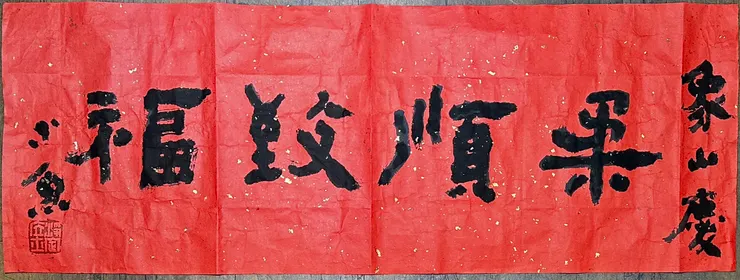 象山慶
柔順致福
小魚